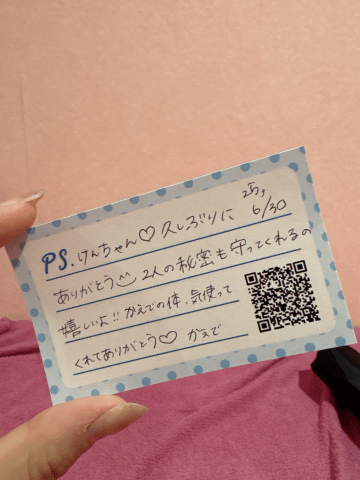 25,
6/30
PS. けんちゃん♡ 久しぶりに
ありがとう 2人の秘密も守ってくれるの
嬉しいよ!! かえでの体、気使って
くれてありがとう♡ かえで